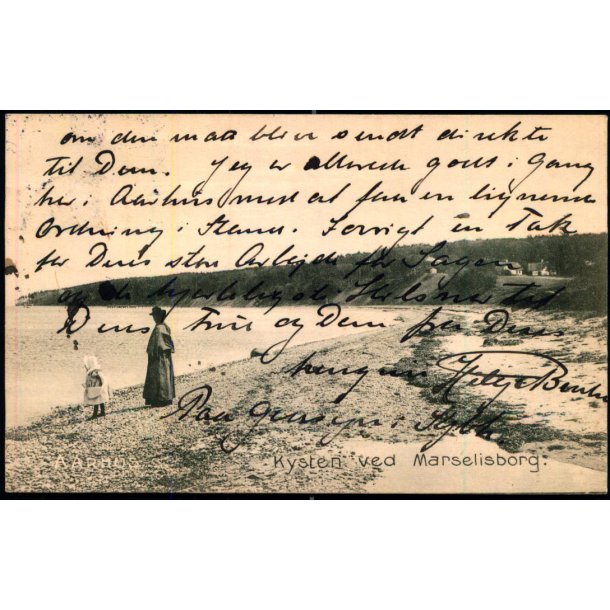 om den maa blive sendt direkte
til Dem. Jeg er allerede godt i Gang
her i Aarhus med at faa en lignende
Ordning i Stand. Forøvrigt en Tak
for Deres store Arbejde for Sagen
og de hjerteligste Hilsener til
Deres Frue og Dem fra Deres
hengivne
Paa Gensyn i
AARHUS
Kysten ved Marselisborg.